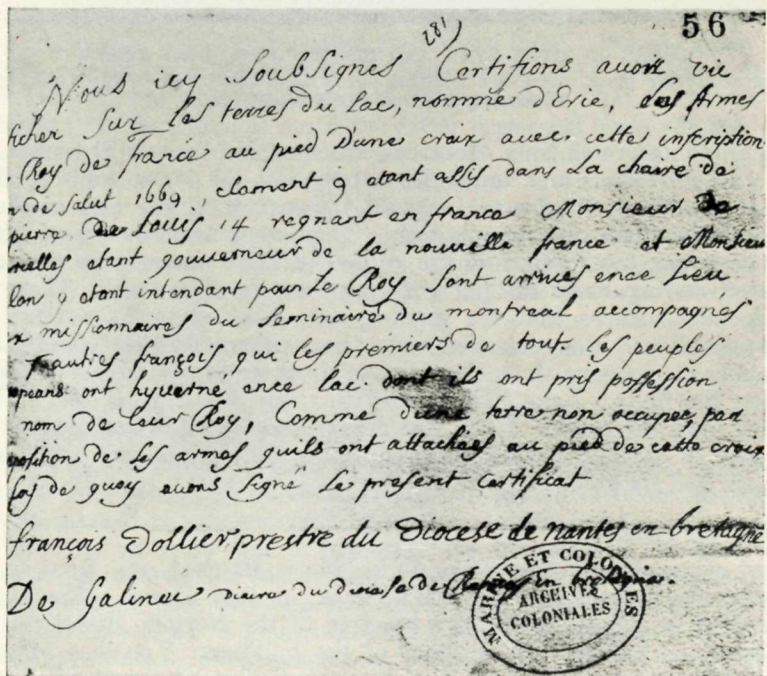 56
281)
Nous icy Soubsignes Certifions avoir vic
ficher Sur les terres du lac, nommé d'Erie, Les Armes
Roy de france au pied D'une croix avec cette inscription
n de Salut 1669, clement 9 etant assis dans La chaire de
pierre Louis 14 regnant en france Monsieur de
rcelles etant gouverneur de la nouvelle france et Monsieu
lon 9 etant intendant pour Le Roy sont arrives ence Lieu
x missionnaires du Seminaire du montreal accompagnés
7 autres françois qui les premiers de tout les peuples
opeans ont hyverné ence lac dont ils ont pris possession
nom de leur Roy, Comme d'une terre non occupeé, par
position de Ses armes quils ont attachées au pied de cette croix
foy de quoy avons Signé Le present Certificat
françois Dollier prestre du Diocese de nantes en bretagne
De Galineé diacre du diocese de Rennes En bretagne.
MARINE ET COLONIES
ARCHIVES
COLONIALES